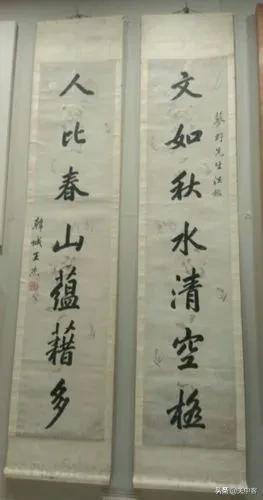 先生法
文如秋水清空極
人比春山蘊藉多
韓城王杰
头条 @关中客